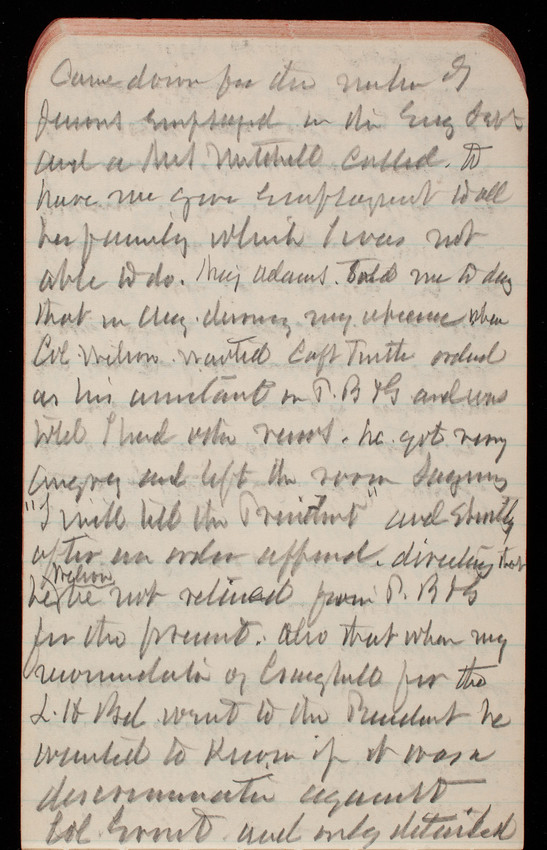 Came down for the number of
persons employed in the Eng Dept
and a Mrs Mitchell called. to
have me give employment to all
her family which I was not
able to do. Maj Adams. told me to day
that in Aug. during my absence when
Col Wilson wanted Capt Turtle ordered
as his assistant on P. B & G and was
told I had other views. he got very
angry and left the room saying
"I will tell the President" and shortly
after an order appeared. directing that
he Wilson be not relieved from P. B & G
for the present. Also that when my
recommendation of Craighill for the
L. H Bd went to the President he
wanted to know if it was a
discrimination against
Col Grant and only detailed